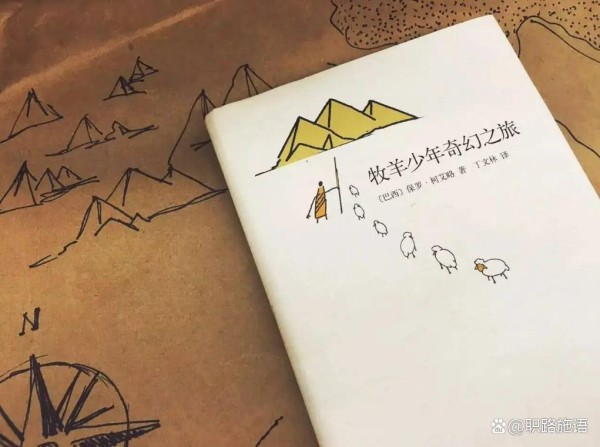 牧羊少年奇幻之旅
〔巴西〕保罗·柯艾略 著 丁文林 译
N
职路施语